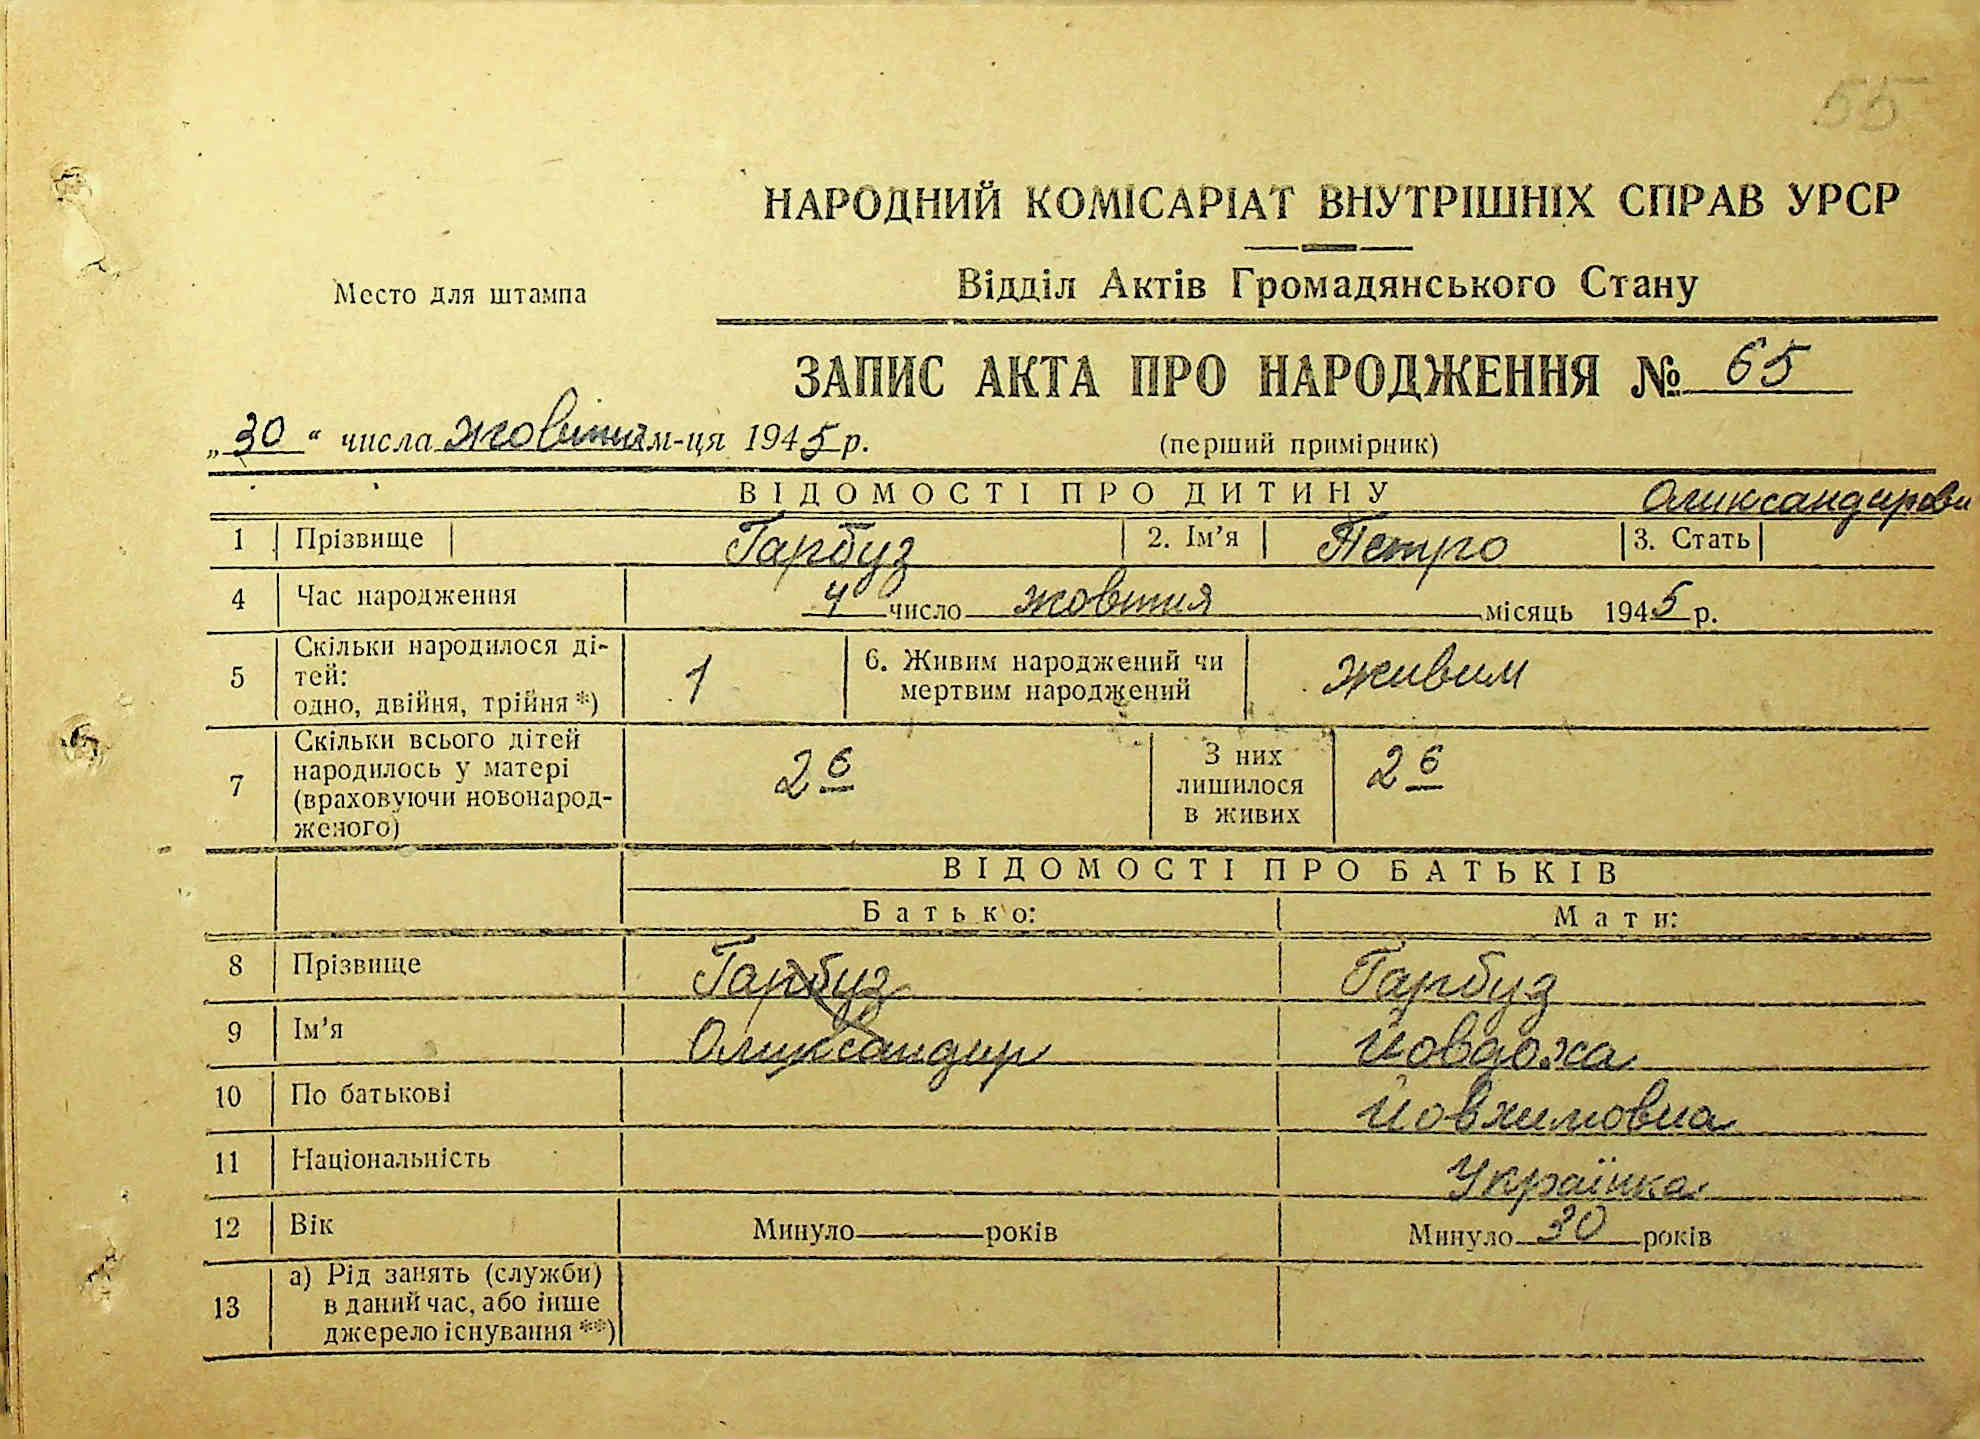 55
НАРОДНИЙ КОМІСАРІАТ ВНУТРІШНІХ СПРАВ УРСР
Место для штампа
Відділ Актів Громадянського Стану
ЗАПИС АКТА ПРО НАРОДЖЕННЯ № 65
„30“ числа жовтня м-ця 1945 р.
(перший примірник)
ВІДОМОСТІ ПРО ДИТИНУ
1 Прізвище Гарбуз 2. Ім'я Петро 3. Стать
4 Час народження 4 число жовтня місяць 1945 р.
5 Скільки народилося ді-
тей:
одно, двійня, трійня *) 1
6. Живим народжений чи
мертвим народжений живим
7 Скільки всього дітей
народилось у матері
(враховуючи новонарод-
женого) 2
З них
лишилося
в живих 2
ВІДОМОСТІ ПРО БАТЬКІВ
Батько: Мати:
8 Прізвище Гарбуз Гарбуз
9 Ім'я Олександир Йовдоха
10 По батькові Йовхимовна
11 Національність Українка
12 Вік Минуло років Минуло 30 років
13 а) Рід занять (служби)
в даний час, або інше
джерело існування **)